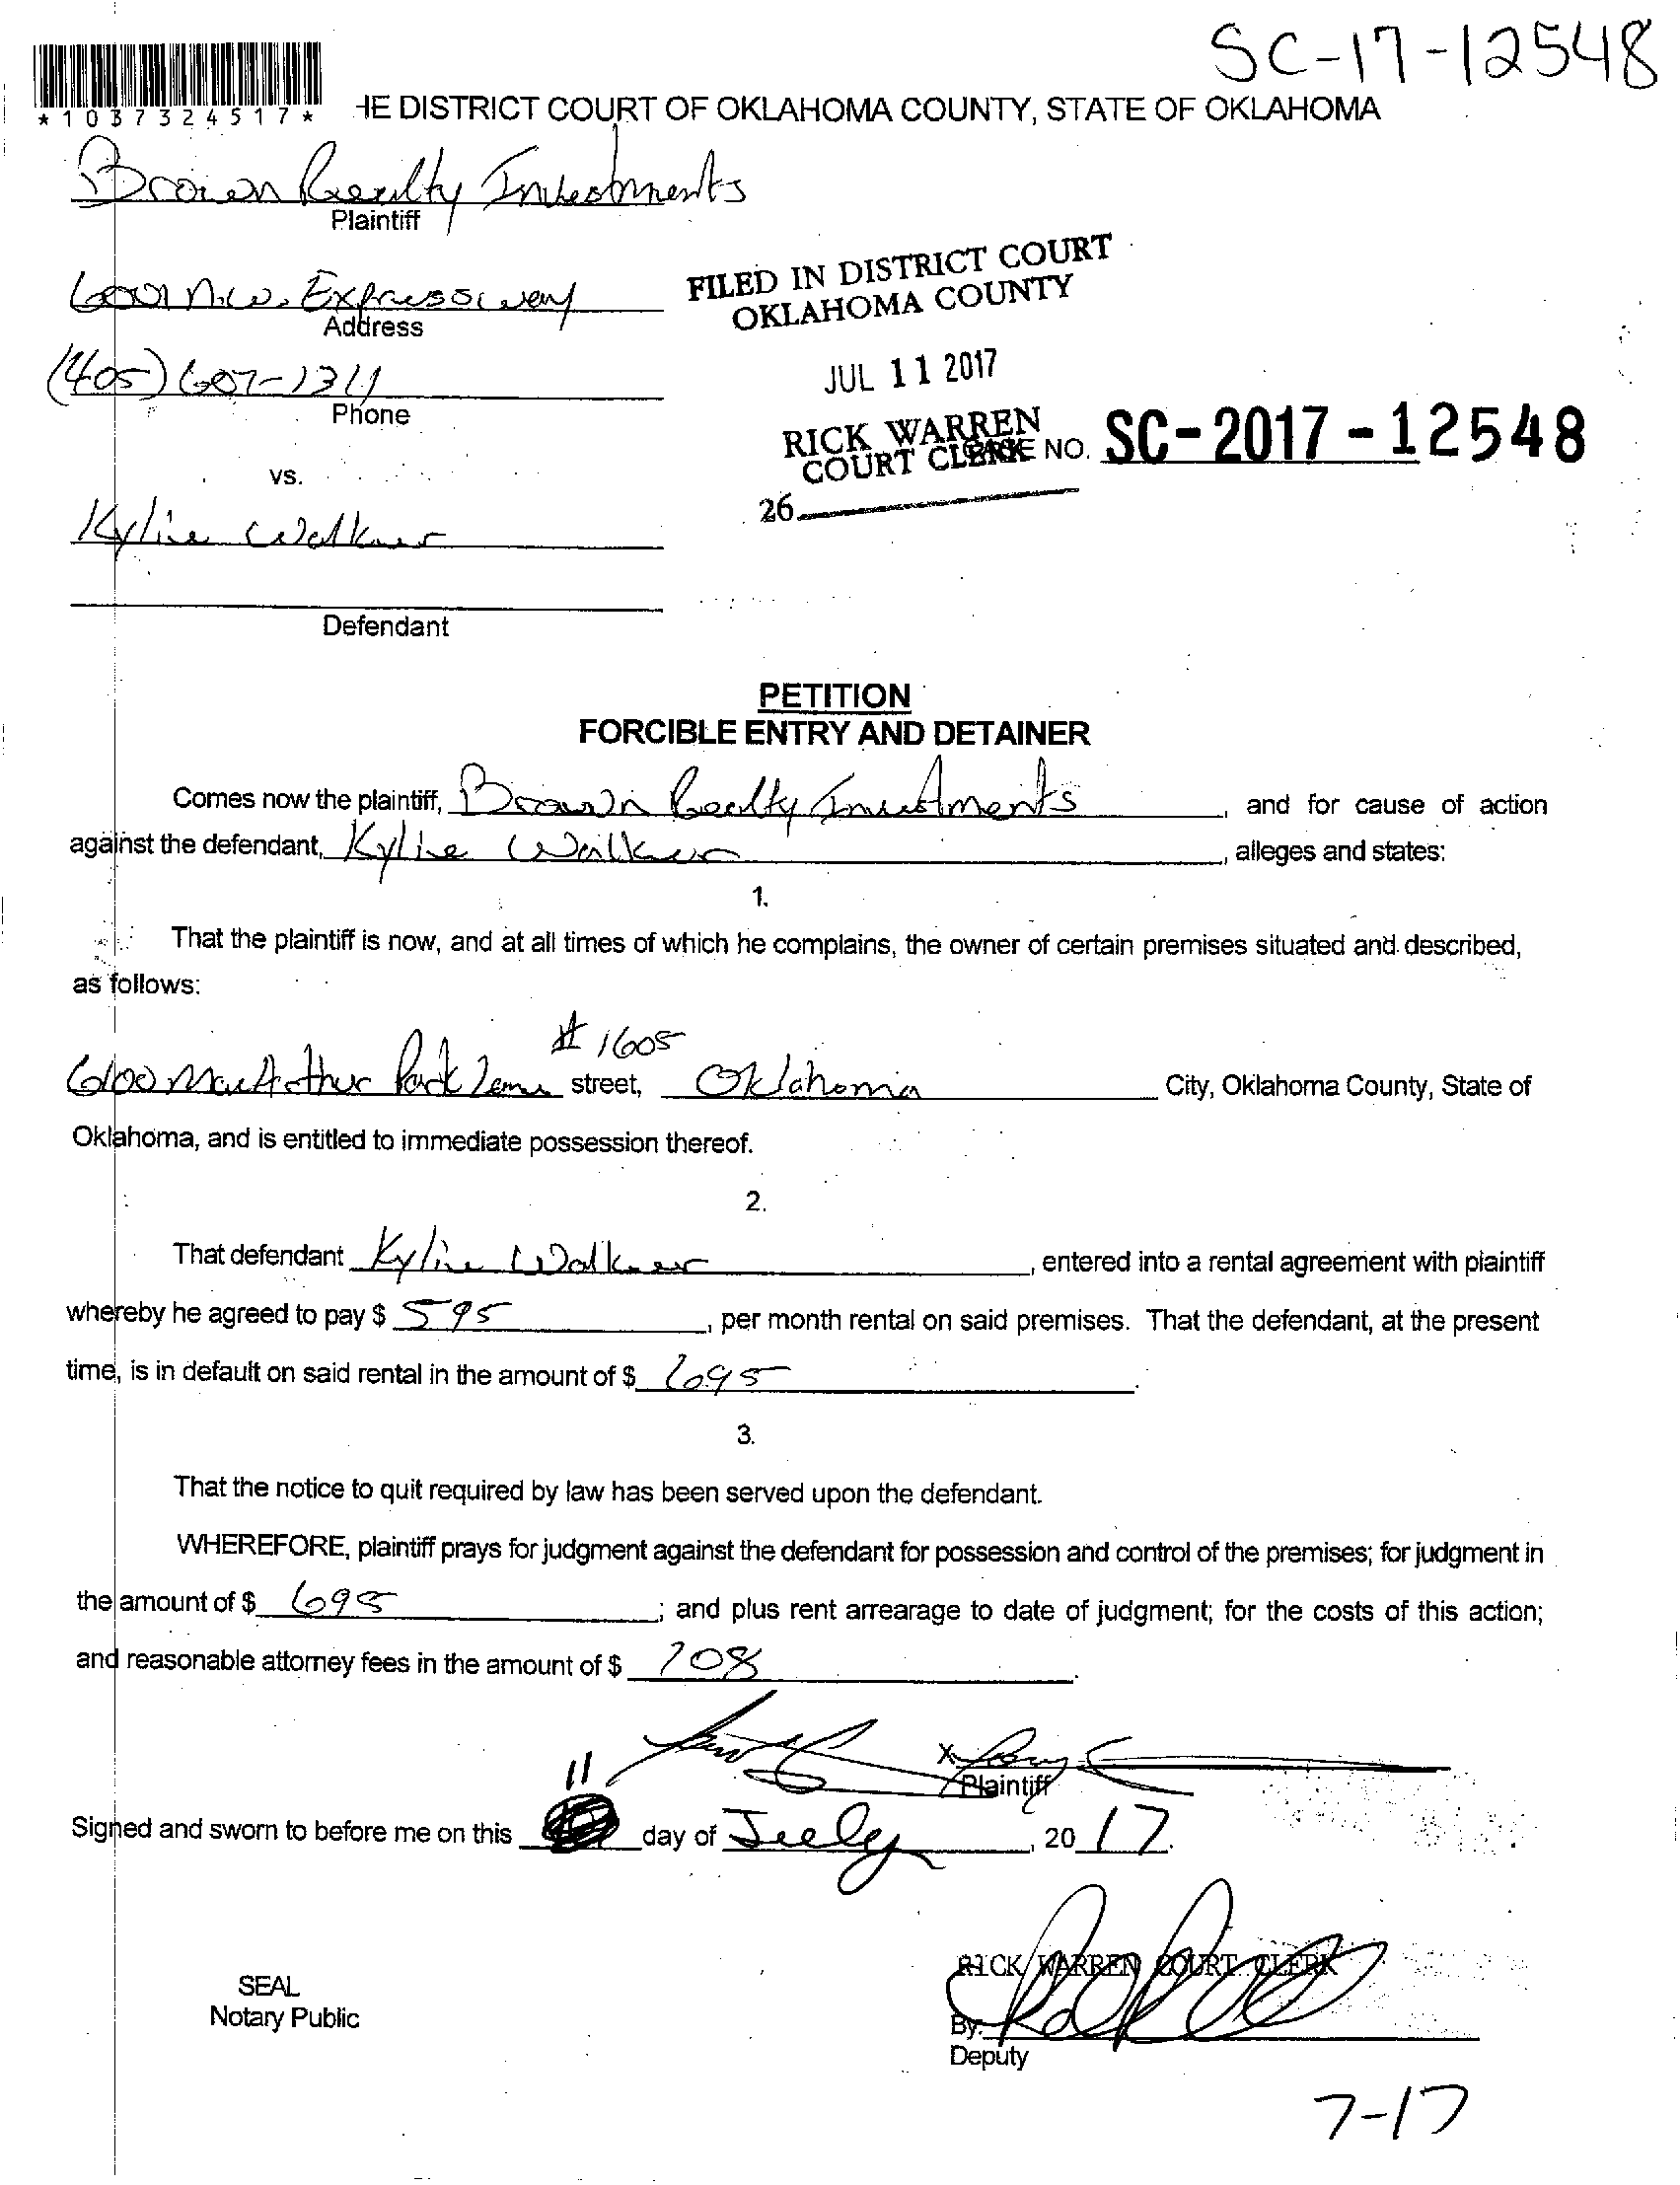 SC-17-12548
*1037324517*
HE DISTRICT COURT OF OKLAHOMA COUNTY, STATE OF OKLAHOMA
Brown Realty Investments
Plaintiff
6001 N.W. Expressway
Address
FILED IN DISTRICT COURT
OKLAHOMA COUNTY
(405) 607-1311
Phone
JUL 11 2017
RICK WARREN
COURT CLERK
CASE NO. SC-2017-12548
vs.
26
Kylie Walkner
Defendant
PETITION
FORCIBLE ENTRY AND DETAINER
Comes now the plaintiff, Brown Realty Investments, and for cause of action
against the defendant, Kylie Walkner, alleges and states:
1.
That the plaintiff is now, and at all times of which he complains, the owner of certain premises situated and described,
as follows:
# 1605
6100 MacArthur Park Lane street, Oklahoma City, Oklahoma County, State of
Oklahoma, and is entitled to immediate possession thereof.
2.
That defendant Kylie Walkner, entered into a rental agreement with plaintiff
whereby he agreed to pay $ 595, per month rental on said premises. That the defendant, at the present
time, is in default on said rental in the amount of $ 695.
3.
That the notice to quit required by law has been served upon the defendant.
WHEREFORE, plaintiff prays for judgment against the defendant for possession and control of the premises; for judgment in
the amount of $ 695; and plus rent arrearage to date of judgment; for the costs of this action;
and reasonable attorney fees in the amount of $ 208.
X
Plaintiff
11
Signed and sworn to before me on this day of July, 2017.
RICK WARREN COURT CLERK
SEAL
Notary Public
By:
Deputy
7-17